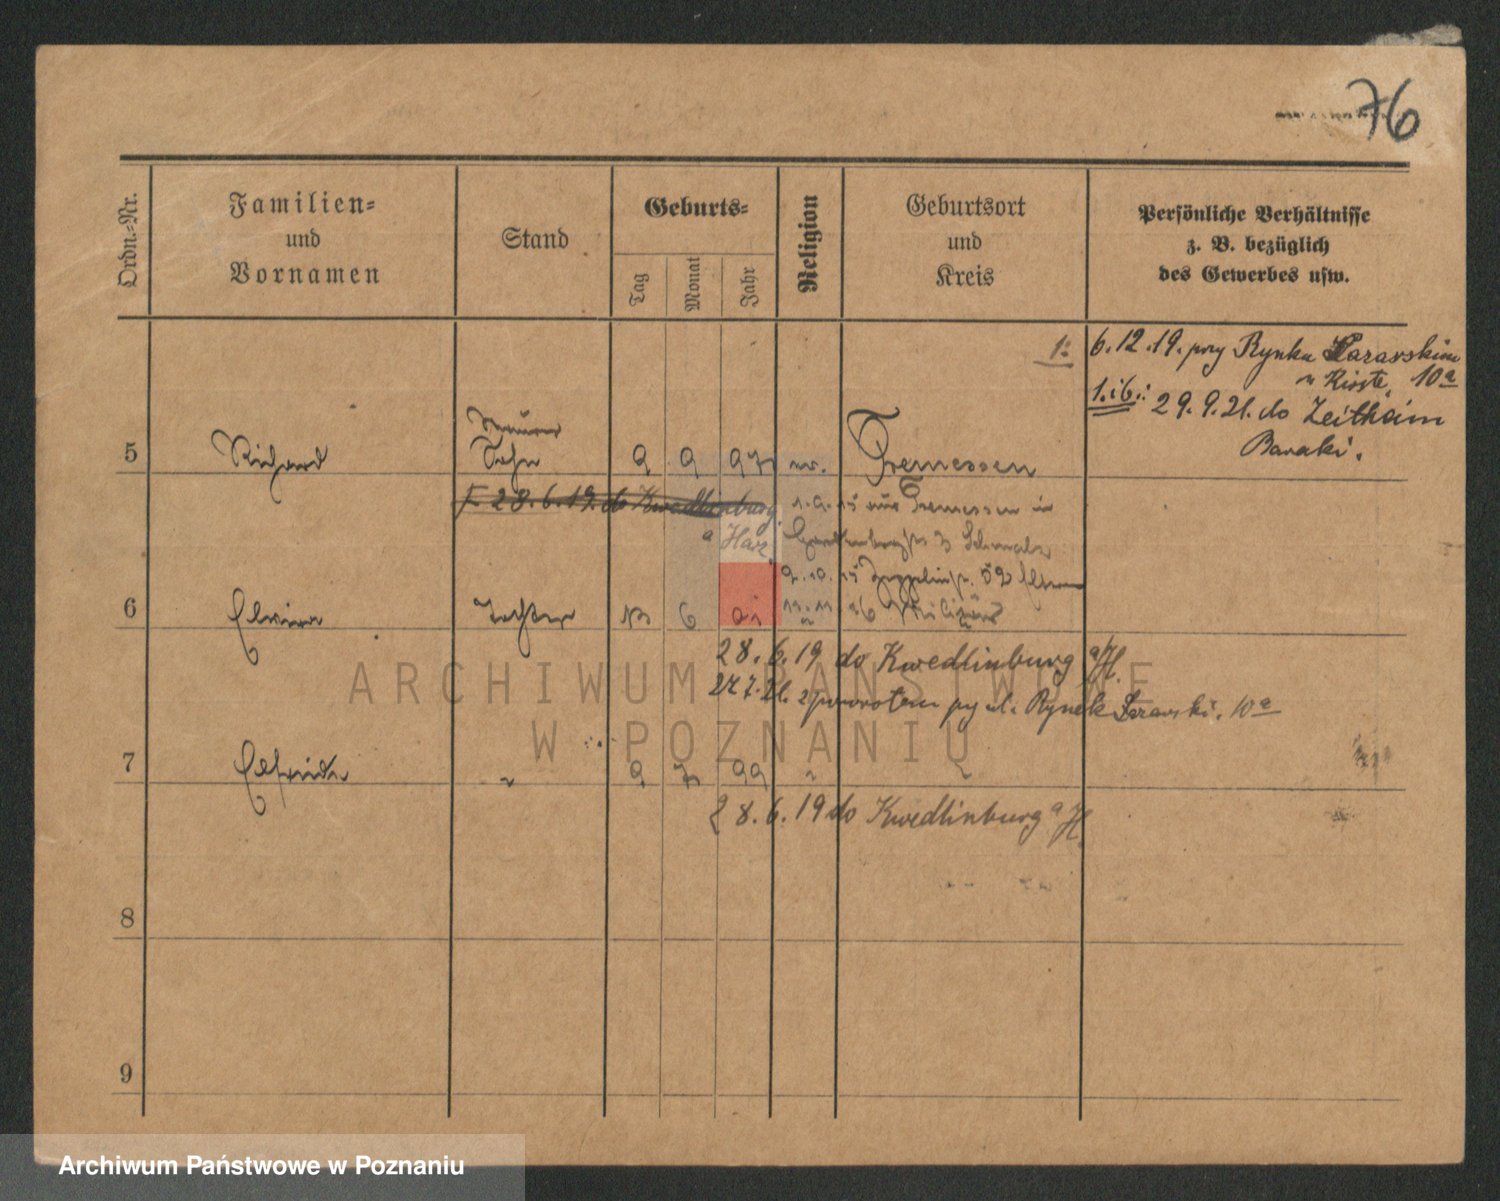 76
Ordn.-Nr.
Familien-
und
Vornamen
Stand
Geburts-
Tag
Monat
Jahr
Religion
Geburtsort
und
Kreis
Persönliche Verhältnisse
z. B. bezüglich
des Gewerbes usw.
1: 6.12.19. przy Rynku Łazarskim
u Kirste, 10a
1. i 6.: 29.9.21. do Zeithain
Baraki.
5 Richard Sohn 9 9 97 Tremessen
28.6.19. do Kwedlinburg
a Harz
Tremessen in
6 Elvira Tochter 13 6 01
28.6.19 do Kwedlinburg a/H.
z powrotem Rynek Łazarski. 10a
7 Elfriede " 9 7 99 "
28.6.19 do Kwedlinburg a/H.
8
9
ARCHIWUM PAŃSTWOWE
W POZNANIU
Archiwum Państwowe w Poznaniu